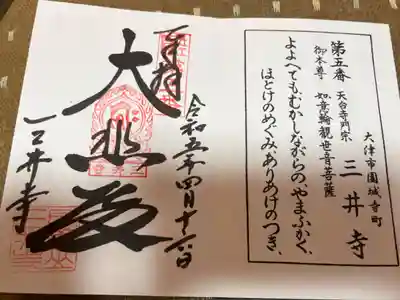 第五番
天台寺門宗
大津市園城寺町
三井寺
御本尊
如意輪観世音菩薩
よよへてもむかしながらの、やまふかく、
ほとけのめぐみ、ありあけのつき、
奉拝
令和五年四月十六日
大悲殿
三井寺